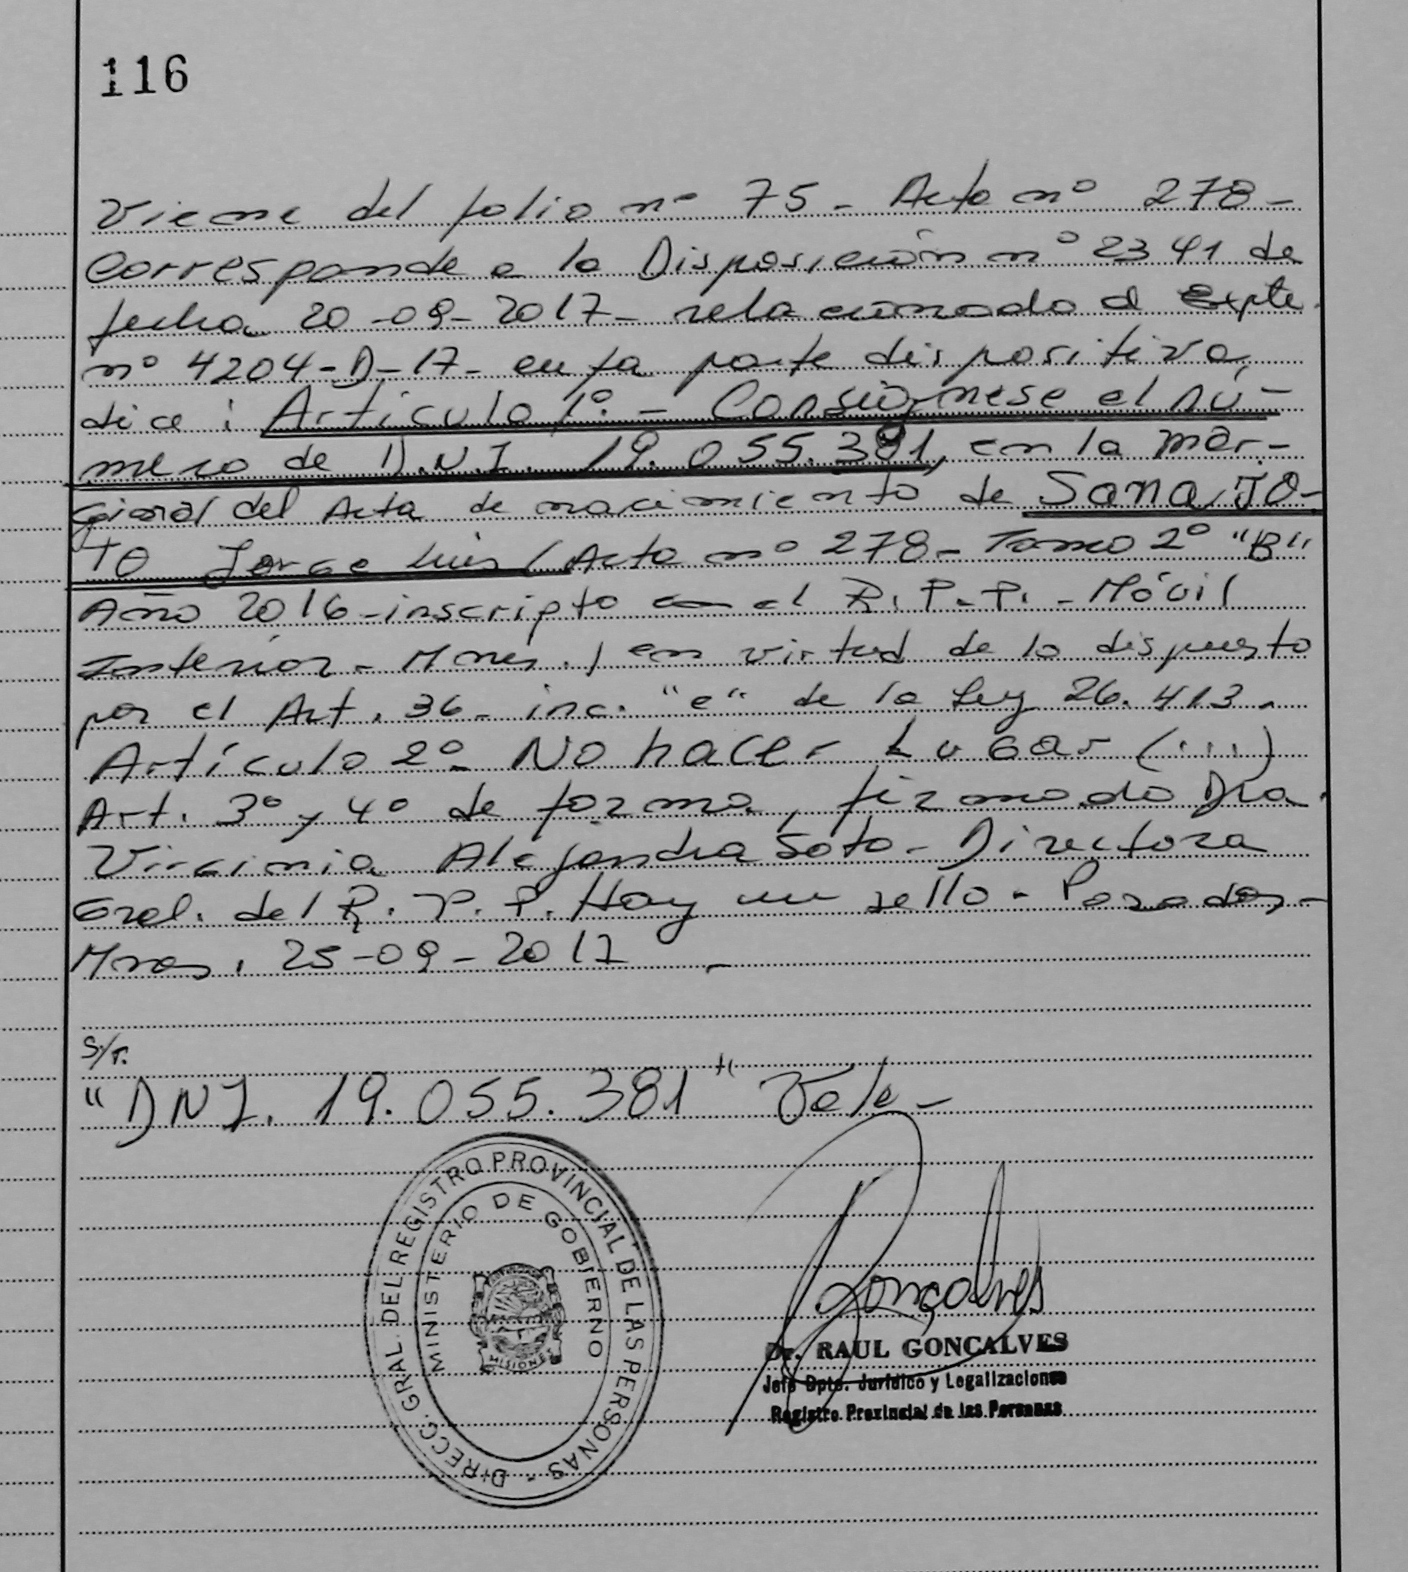 116
Viene del folio nº 75 - Acta nº 278 -
Corresponde a la Disposición nº 2341 de
fecha 20-09-2017 - relacionado al Expte.
nº 4204-D-17- en la parte dispositiva,
dice: Artículo 1º.- Consígnese el nú-
mero de D.N.I. 19.055.381, en la mar-
ginal del Acta de nacimiento de SANA, JO-
TO Jorge Luis (Acta nº 278 - Tomo 2º "B"
Año 2016-inscripto en el R.P.P. - Móvil
Interior - Mnes.) en virtud de lo dispuesto
por el Art. 36 - inc. "e" de la Ley 26.413.
Artículo 2º - No hacer Lugar (...)
Art. 3º y 4º de forma, firmado Dra.
Virginia Alejandra Soto - Directora
Gral. del R.P.P. Hay un sello - Posadas, -
Mnes, 25-09-2017 -
S/r.
"DNI. 19.055.381" Vale -
DIRECC. GRAL. DEL REGISTRO PROVINCIAL DE LAS PERSONAS -
MINISTERIO DE GOBIERNO
MISIONES
Gonçalves
Dr. RAUL GONCALVES
Jefe Dpto. Jurídico y Legalizaciones
Registro Provincial de las Personas